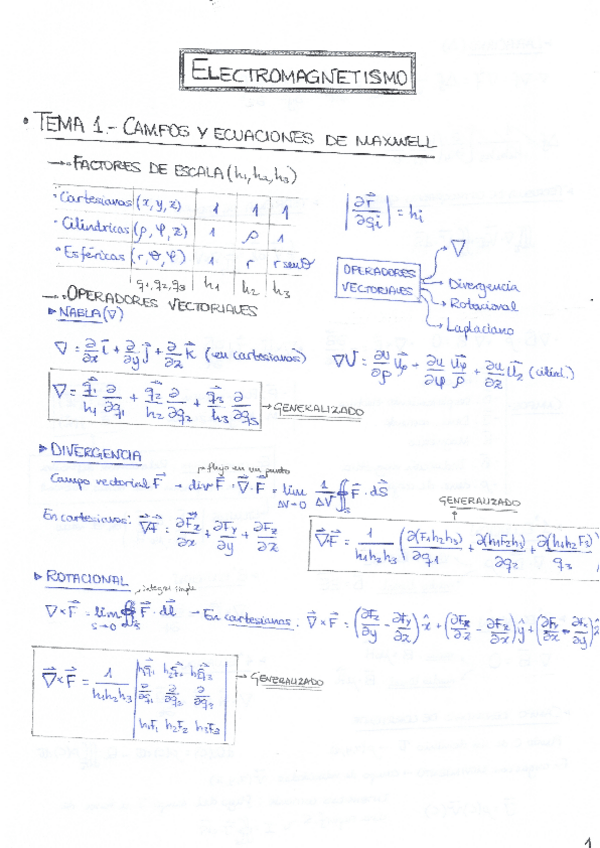 ELECTROMAGNETISMO
• TEMA 1.- CAMPOS Y ECUACIONES DE MAXWELL
→ • FACTORES DE ESCALA (h₁, h₂, h₃)
• Cartesianas (x, y, z) 1 1 1
• Cilíndricas (ρ, φ, z) 1 ρ 1
• Esféricas (r, θ, φ) 1 r r senθ
q₁, q₂, q₃ h₁ h₂ h₃
|∂r⃗/∂qi| = hi
OPERADORES VECTORIALES
∇
Divergencia
Rotacional
Laplaciano
→ • OPERADORES VECTORIALES
▸ NABLA (∇)
∇ = ∂/∂x i⃗ + ∂/∂y j⃗ + ∂/∂z k⃗ (en cartesianas)
∇U = ∂u/∂ρ u⃗ρ + ∂u/∂φ u⃗φ/ρ + ∂u/∂z u⃗z (cilínd.)
∇ = q⃗₁/h₁ ∂/∂q₁ + q⃗₂/h₂ ∂/∂q₂ + q⃗₃/h₃ ∂/∂q₃ → GENERALIZADO
▸ DIVERGENCIA
flujo en un punto
Campo vectorial F⃗ → div F⃗ = ∇⃗·F⃗ = lim ΔV→0 1/ΔV ∯s F⃗·dS⃗
GENERALIZADO
En cartesianas: ∇⃗F⃗ = ∂Fx/∂x + ∂Fy/∂y + ∂Fz/∂z
∇⃗F⃗ = 1/h₁h₂h₃ (∂(F₁h₂h₃)/∂q₁ + ∂(h₁F₂h₃)/∂q₂ + ∂(h₁h₂F₃)/q₃)
▸ ROTACIONAL
integral simple
∇×F⃗ = lim S→0 ∮ F⃗·dl⃗ → En cartesianas: ∇⃗×F⃗ = (∂Fz/∂y - ∂Fy/∂z) x̂ + (∂Fx/∂z - ∂Fz/∂x) ŷ + (∂Fy/∂x - ∂Fx/∂y) ẑ
∇⃗×F⃗ = 1/h₁h₂h₃ | h₁q⃗₁ h₂q⃗₂ h₃q⃗₃ |
∂/∂q₁ ∂/∂q₂ ∂/∂q₃
h₁F₁ h₂F₂ h₃F₃
→ GENERALIZADO
1